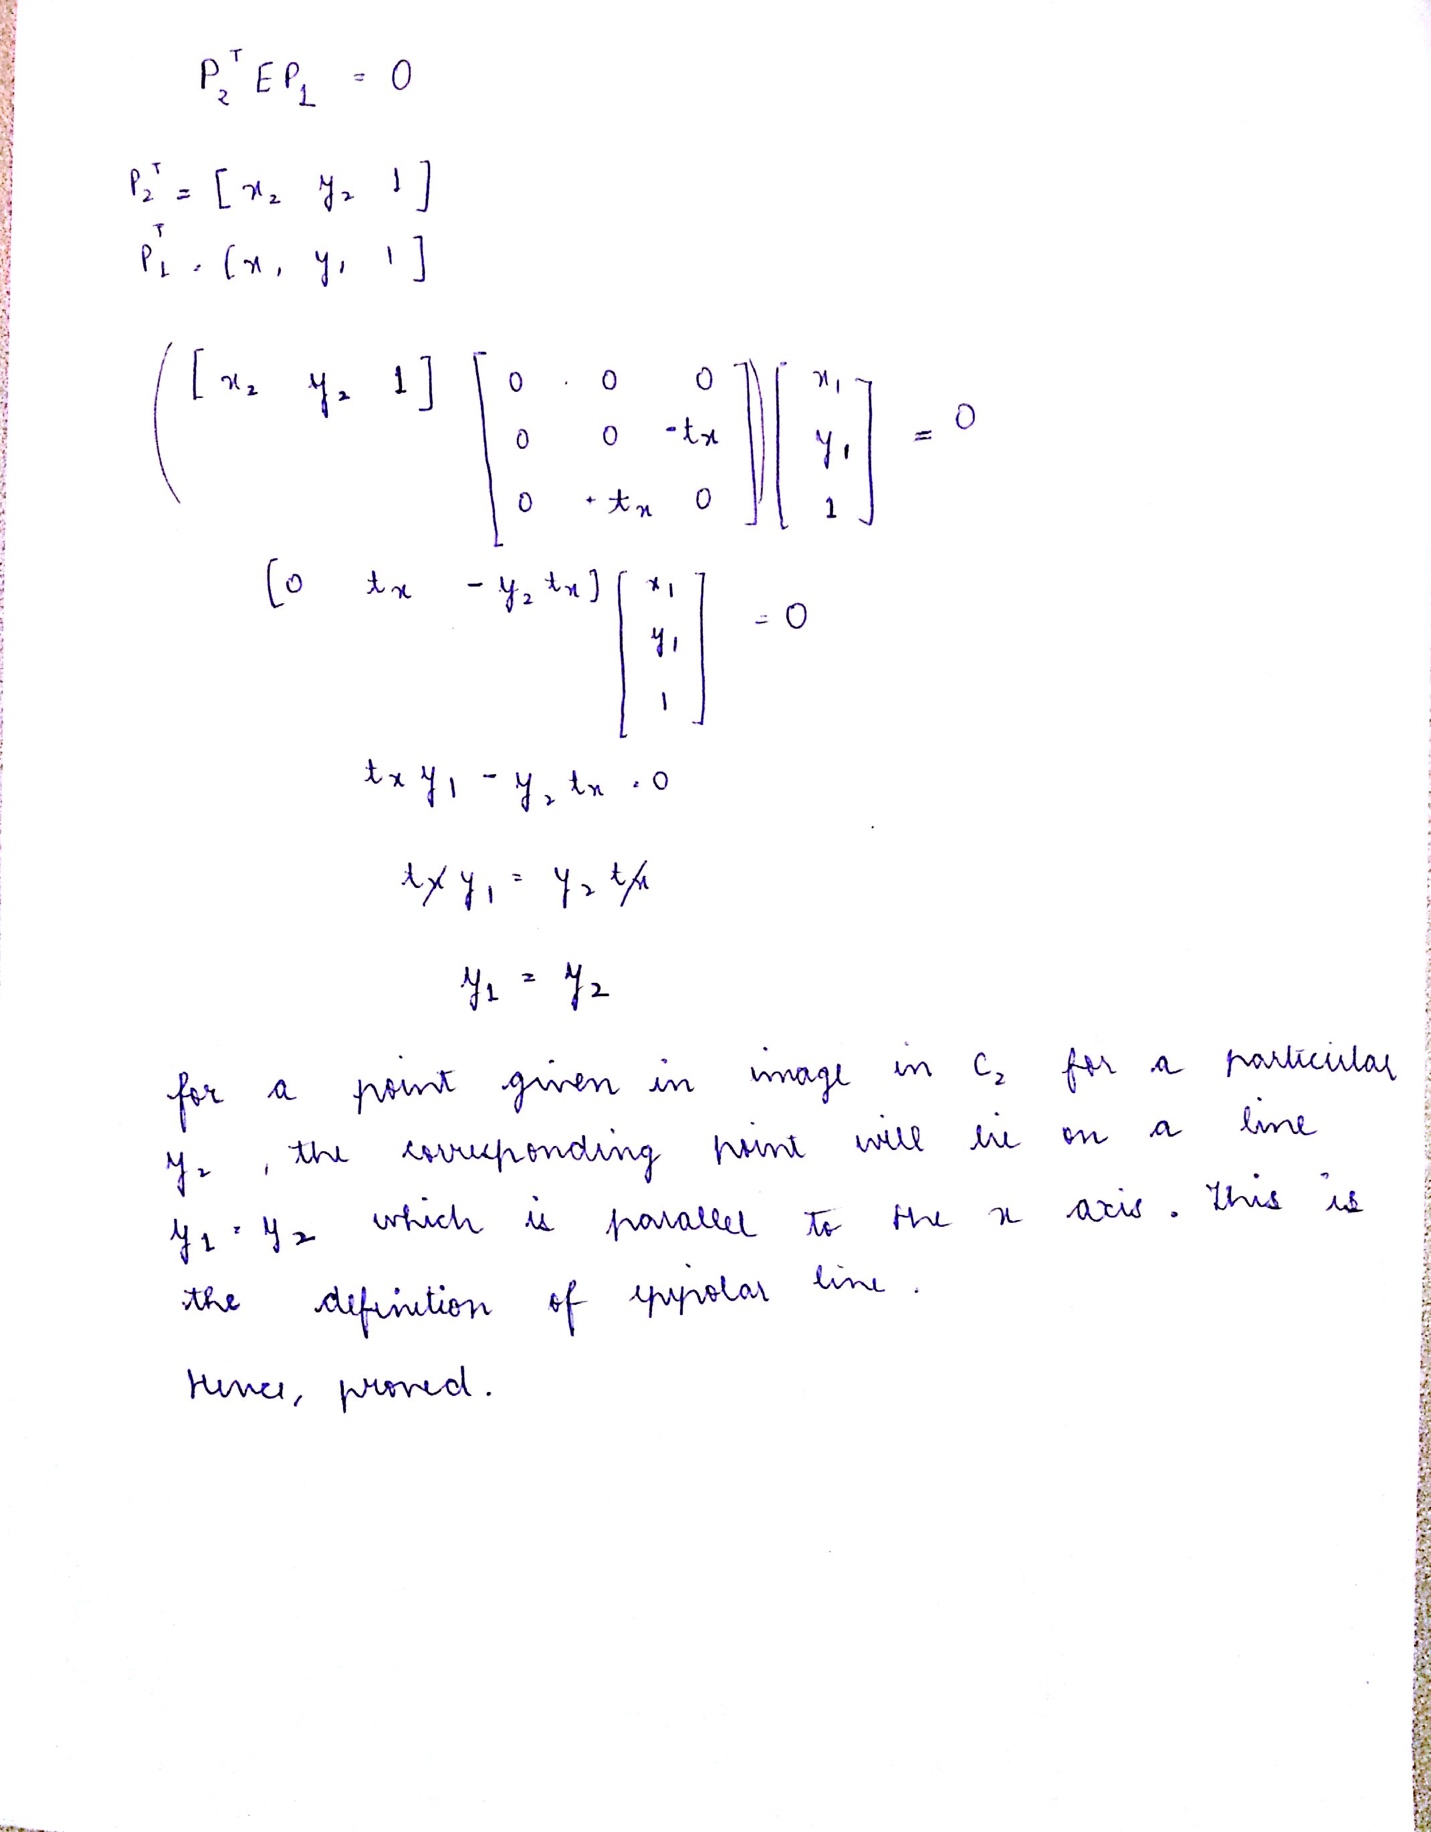 P₂ᵀ E P₁ = 0
P₂ᵀ = [ x₂ y₂ 1 ]
P₁ᵀ = [ x₁ y₁ 1 ]
( [ x₂ y₂ 1 ] [ 0 0 0
0 0 -tx
0 +tx 0 ] ) [ x₁
y₁
1 ] = 0
[ 0 tx -y₂ tx ] [ x₁
y₁
1 ] = 0
tx y₁ - y₂ tx = 0
tx y₁ = y₂ tx
y₁ = y₂
for a point given in image in C₂ for a particular
y₂ , the corresponding point will lie on a line
y₁ = y₂ which is parallel to the x axis. This is
the definition of epipolar line.
Hence, proved.